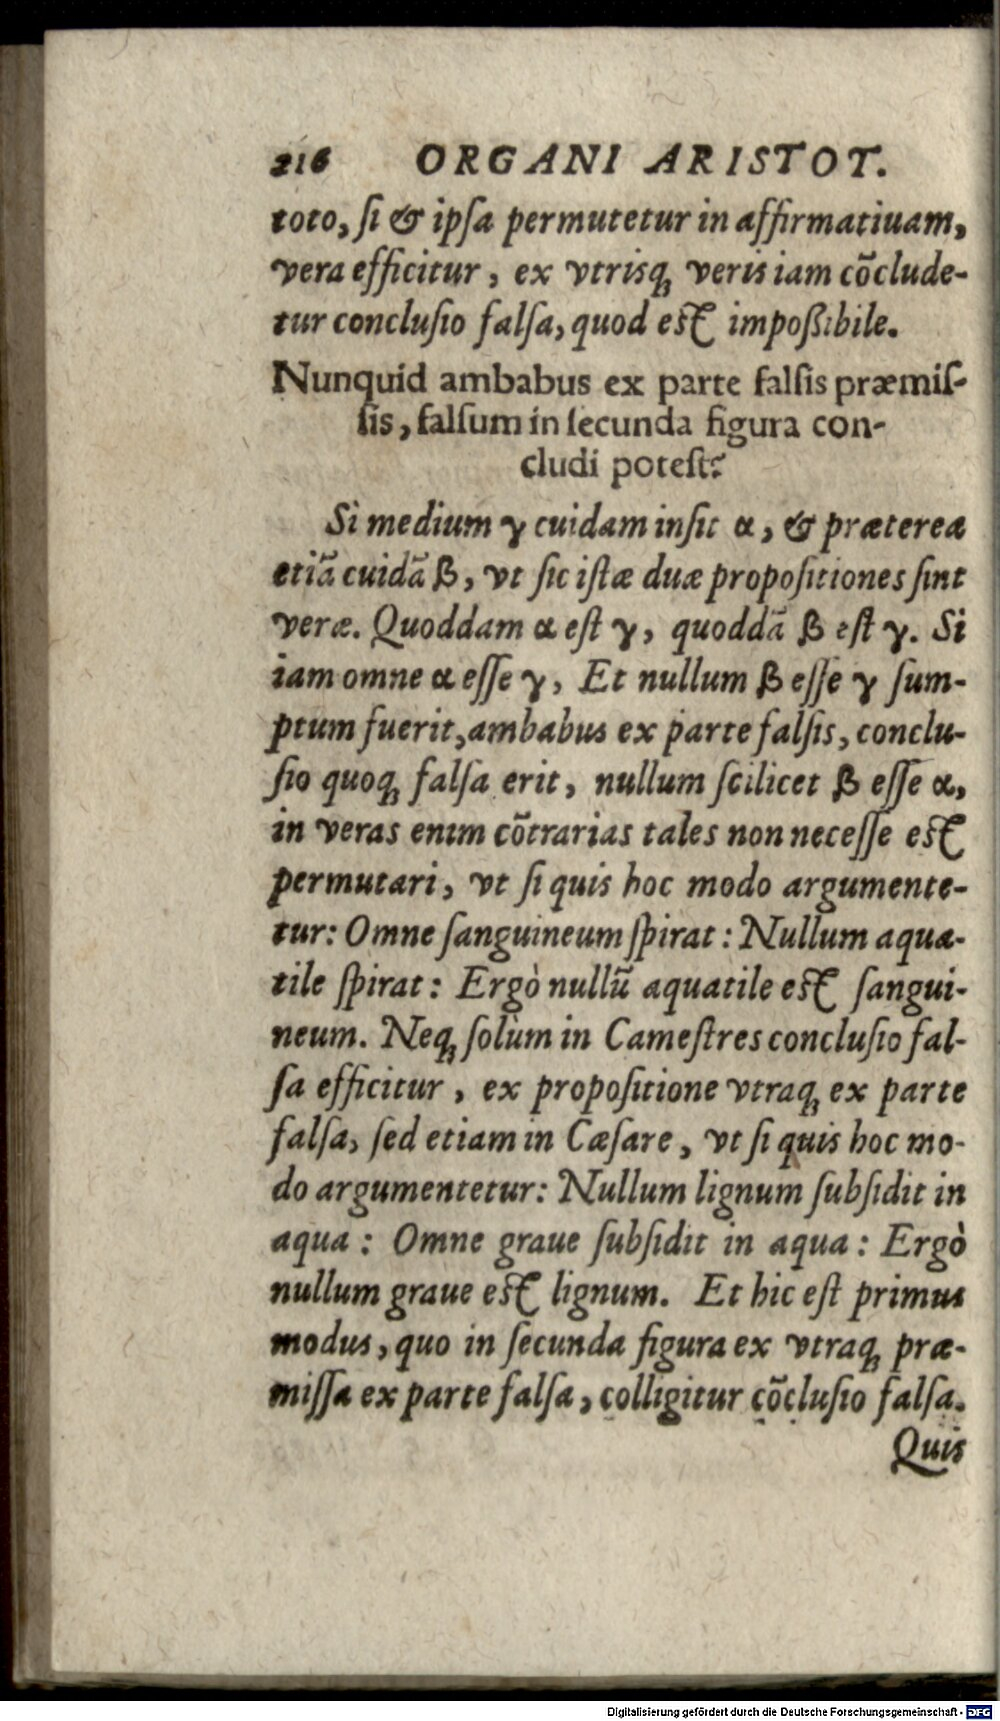 216 ORGANI ARISTOT.
toto, ſi & ipſa permutetur in affirmatiuam,
vera efficitur, ex vtrisq; veris iam cōclude-
tur concluſio falſa, quod eſt impoßibile.
Nunquid ambabus ex parte falſis præmiſ-
ſis, falſum in ſecunda figura con-
cludi poteſt?
Si medium γ cuidam inſit α, & præterea
etiā cuidā β, vt ſic iſtæ duæ propoſitiones ſint
veræ. Quoddam α eſt γ, quoddā β eſt γ. Si
iam omne α eſſe γ, Et nullum β eſſe γ ſum-
ptum fuerit, ambabus ex parte falſis, conclu-
ſio quoq; falſa erit, nullum ſcilicet β eſſe α,
in veras enim cōtrarias tales non neceſſe eſt
permutari, vt ſi quis hoc modo argumente-
tur: Omne ſanguineum ſpirat: Nullum aqua-
tile ſpirat: Ergò nullū aquatile eſt ſangui-
neum. Neq; ſolùm in Cameſtres concluſio fal-
ſa efficitur, ex propoſitione vtraq; ex parte
falſa, ſed etiam in Cæſare, vt ſi quis hoc mo-
do argumentetur: Nullum lignum ſubſidit in
aqua: Omne graue ſubſidit in aqua: Ergò
nullum graue eſt lignum. Et hic eſt primus
modus, quo in ſecunda figura ex vtraq; præ-
miſſa ex parte falſa, colligitur cōcluſio falſa.
Quis
Digitalisierung gefördert durch die Deutsche Forschungsgemeinschaft - DFG